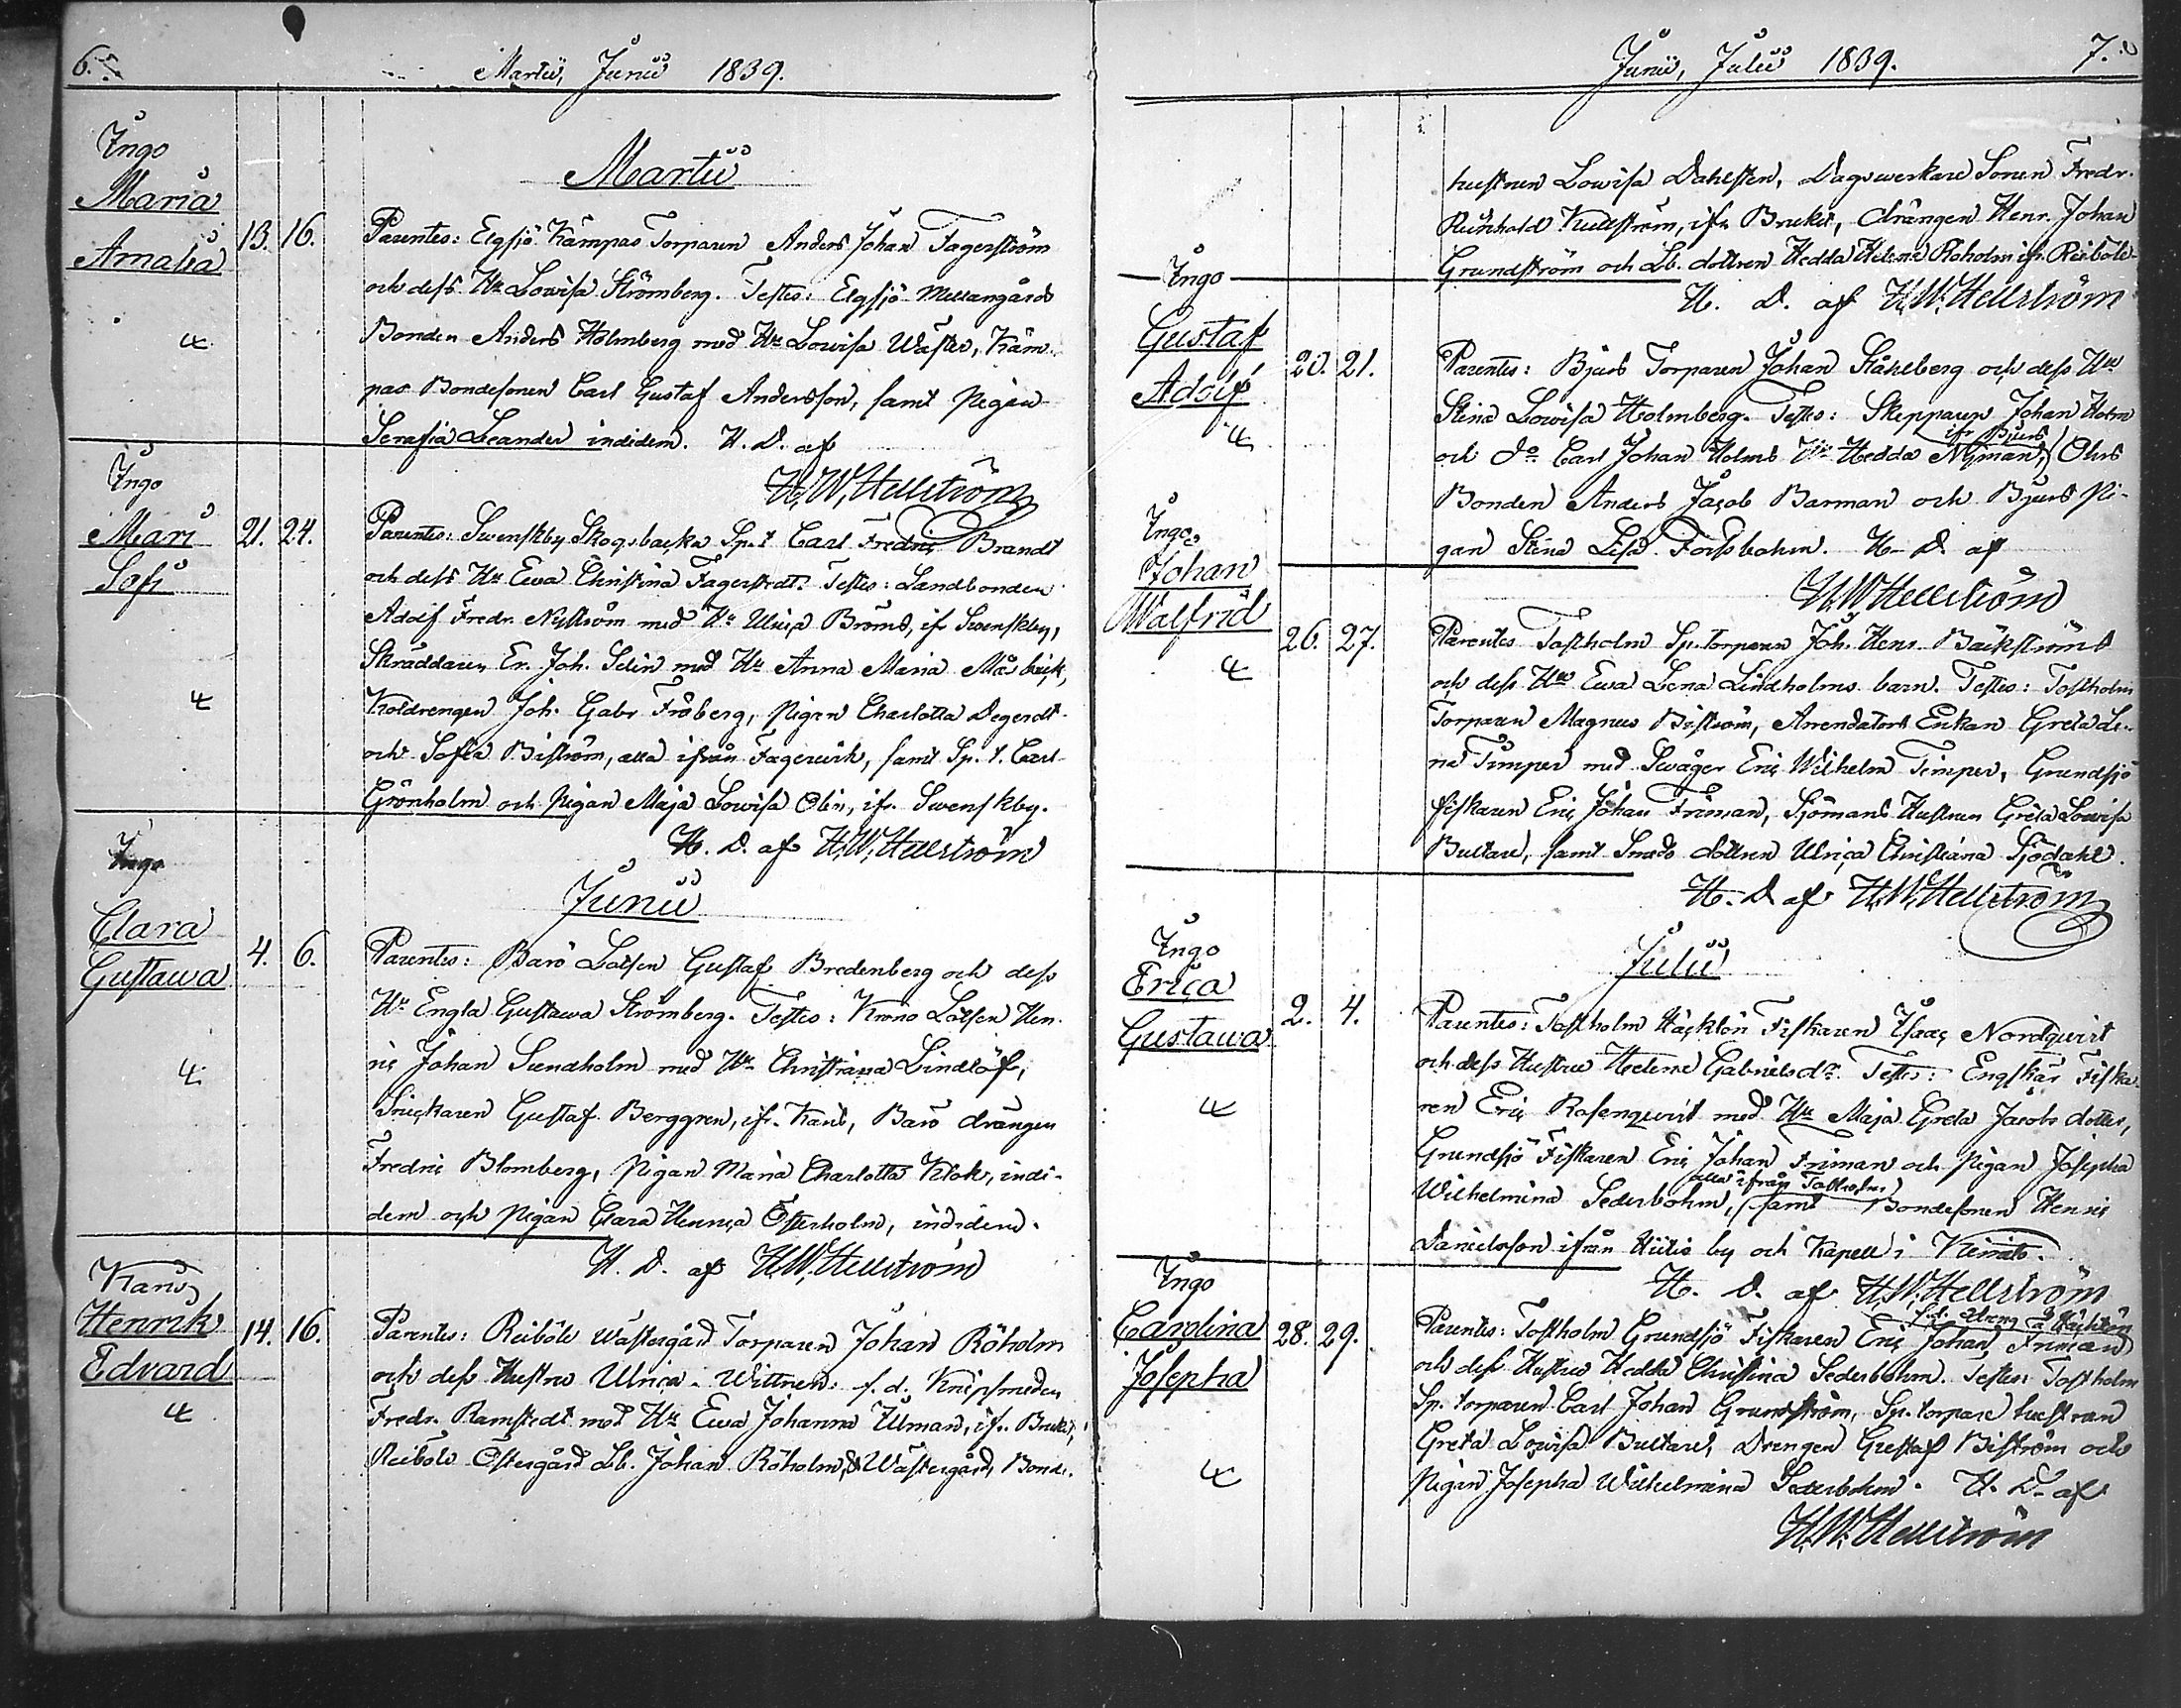 6.
Martii, Junii 1839.
Martii
Ingo
Maria
Amalia
13. 16.
Parentes: Elgsjö Kämpas Torparen Anders Johan Fagerström
och dess Hu Lowisa Strömberg. Testes: Elgsjö Mellangårds
Bonden Anders Holmberg med Hu Lowisa Wäster, Käm-
pas Bondesonen Carl Gustaf Andersson, samt Pigan
Serafia Leander indidem. H. D. af
H. W. Hellström
Ingo
Mari
Sofi
21. 24.
Parentes: Swenskby Skogsbacka Sp. t Carl Fredric Brandt
och dess Hu Ewa Christina Fagerstedt. Testes: Landbonden
Adolf Fredr. Nyström med Hu Ulrica Broms, ifr Swenskby,
Skräddaren Er. Joh. Selin med Hu Anna Maria Måsbäck,
Koldrengen Joh. Gabr Fröberg, Pigan Charlotta Degerdt
och Sofia Biström, alla ifrån Fagerwik, samt Sp. t. Carl
Grönholm och Pigan Maja Lowisa Olin, ifr. Swenskby.
H. D. af H. W. Hellström
Junii
Ingo
Clara
Gustawa
4. 6.
Parentes: Barö Lotsen Gustaf Bredenberg och dess
Hu Engla Gustawa Strömberg. Testes: Krono Lotsen Hen-
ric Johan Sundholm med Hu Christiana Lindlöf,
Snickaren Gustaf Berggren, ifr. Karis, Barö drängen
Fredric Blomberg, Pigan Maria Charlotta Klok, indi-
dem och Pigan Clara Henrica Österholm, indidem.
H. D. af H. W. Hellström
Karis
Henrik
Edvard
14. 16.
Parentes: Reiböle Wästergård Torparen Johan Röholm
och dess Hustru Ulrica. Wittnen: f. d. Knipsmeden
Fredr. Ramstedt med Hu Ewa Johanna Ulman, ifr. Bruket,
Reiböle Östergård Lb. Johan Röholm, & Wästergård, Bond-
7.
Junii, Julii 1839.
hustrun Lowisa Dahlsten, Dagswerkare Sonen Fredr.
Reinhold Kullström, ifr. Bruket, drängen Henr. Johan
Grundström och Lb. dottren Hedda Helena Roholm ifr. Reiböle
H. D. af H. W. Hellström
Ingo
Gustaf
Adolf
20. 21.
Parentes: Bjurs Torparen Johan Ståhlberg och dess Hu
Stina Lowisa Holmberg. Testes: Skepparen Johan Holm
ifr Bjurs
och Do Carl Johan Holms Hu Hedda Nyman, Ohrs
Bonden Anders Jacob Barman och Bjurs Pi-
gan Stina Lisa Forssbohm. H. D. af
H. W. Hellström
Ingo
Johan
Walfrid
26. 27.
Parentes Tostholm Sp. torparen Joh. Henr. Bäckströms
och dess Hu Ewa Lena Lindholms barn. Testes: Tostholm
Torparen Magnus Biström, Arrendators Enkan Greta Le-
na Timper med Swåger Eric Wilhelm Timper, Grundsjö
fiskaren Eric Johan Friman, Sjömans Hustrun Greta Lowisa
Bultare, samt Smeds dottren Ulrica Christiana Sjödahl.
H. D. af H. W. Hellström
Julii
Ingo
Erica
Gustawa
2. 4.
Parentes: Tostholm Häcklön Fiskaren Isaac Nordqvist
och dess Hustru Helena Gabrielsdr. Testes: Engskär Fiska-
ren Eric Rosenqvist med Hu Maja Greta Jacobs dotter,
Grundsjö Fiskaren Eric Johan Friman och Pigan Josepha
alla ifrån Tostholm
Wilhelmina Sederbohm, samt Bondesonen Henric
Danielsson ifrån Hitis by och Kapell i Kimito.
H. D. af H. W. Hellström
Ingo
Carolina
Josepha
28. 29.
å Häcklön
Parentes: Tostholm Grundsjö Fiskaren Eric Johan Friman
och dess Hustru Hedda Christina Sederbohm. Testes: Tostholm
Sp. torparen Carl Johan Grundström, Sp. torpare hustrun
Greta Lowisa Bultare, Drengen Gustaf Biström och
Pigan Josepha Wilhelmina Sederbohm. H. D. af
H. W. Hellström